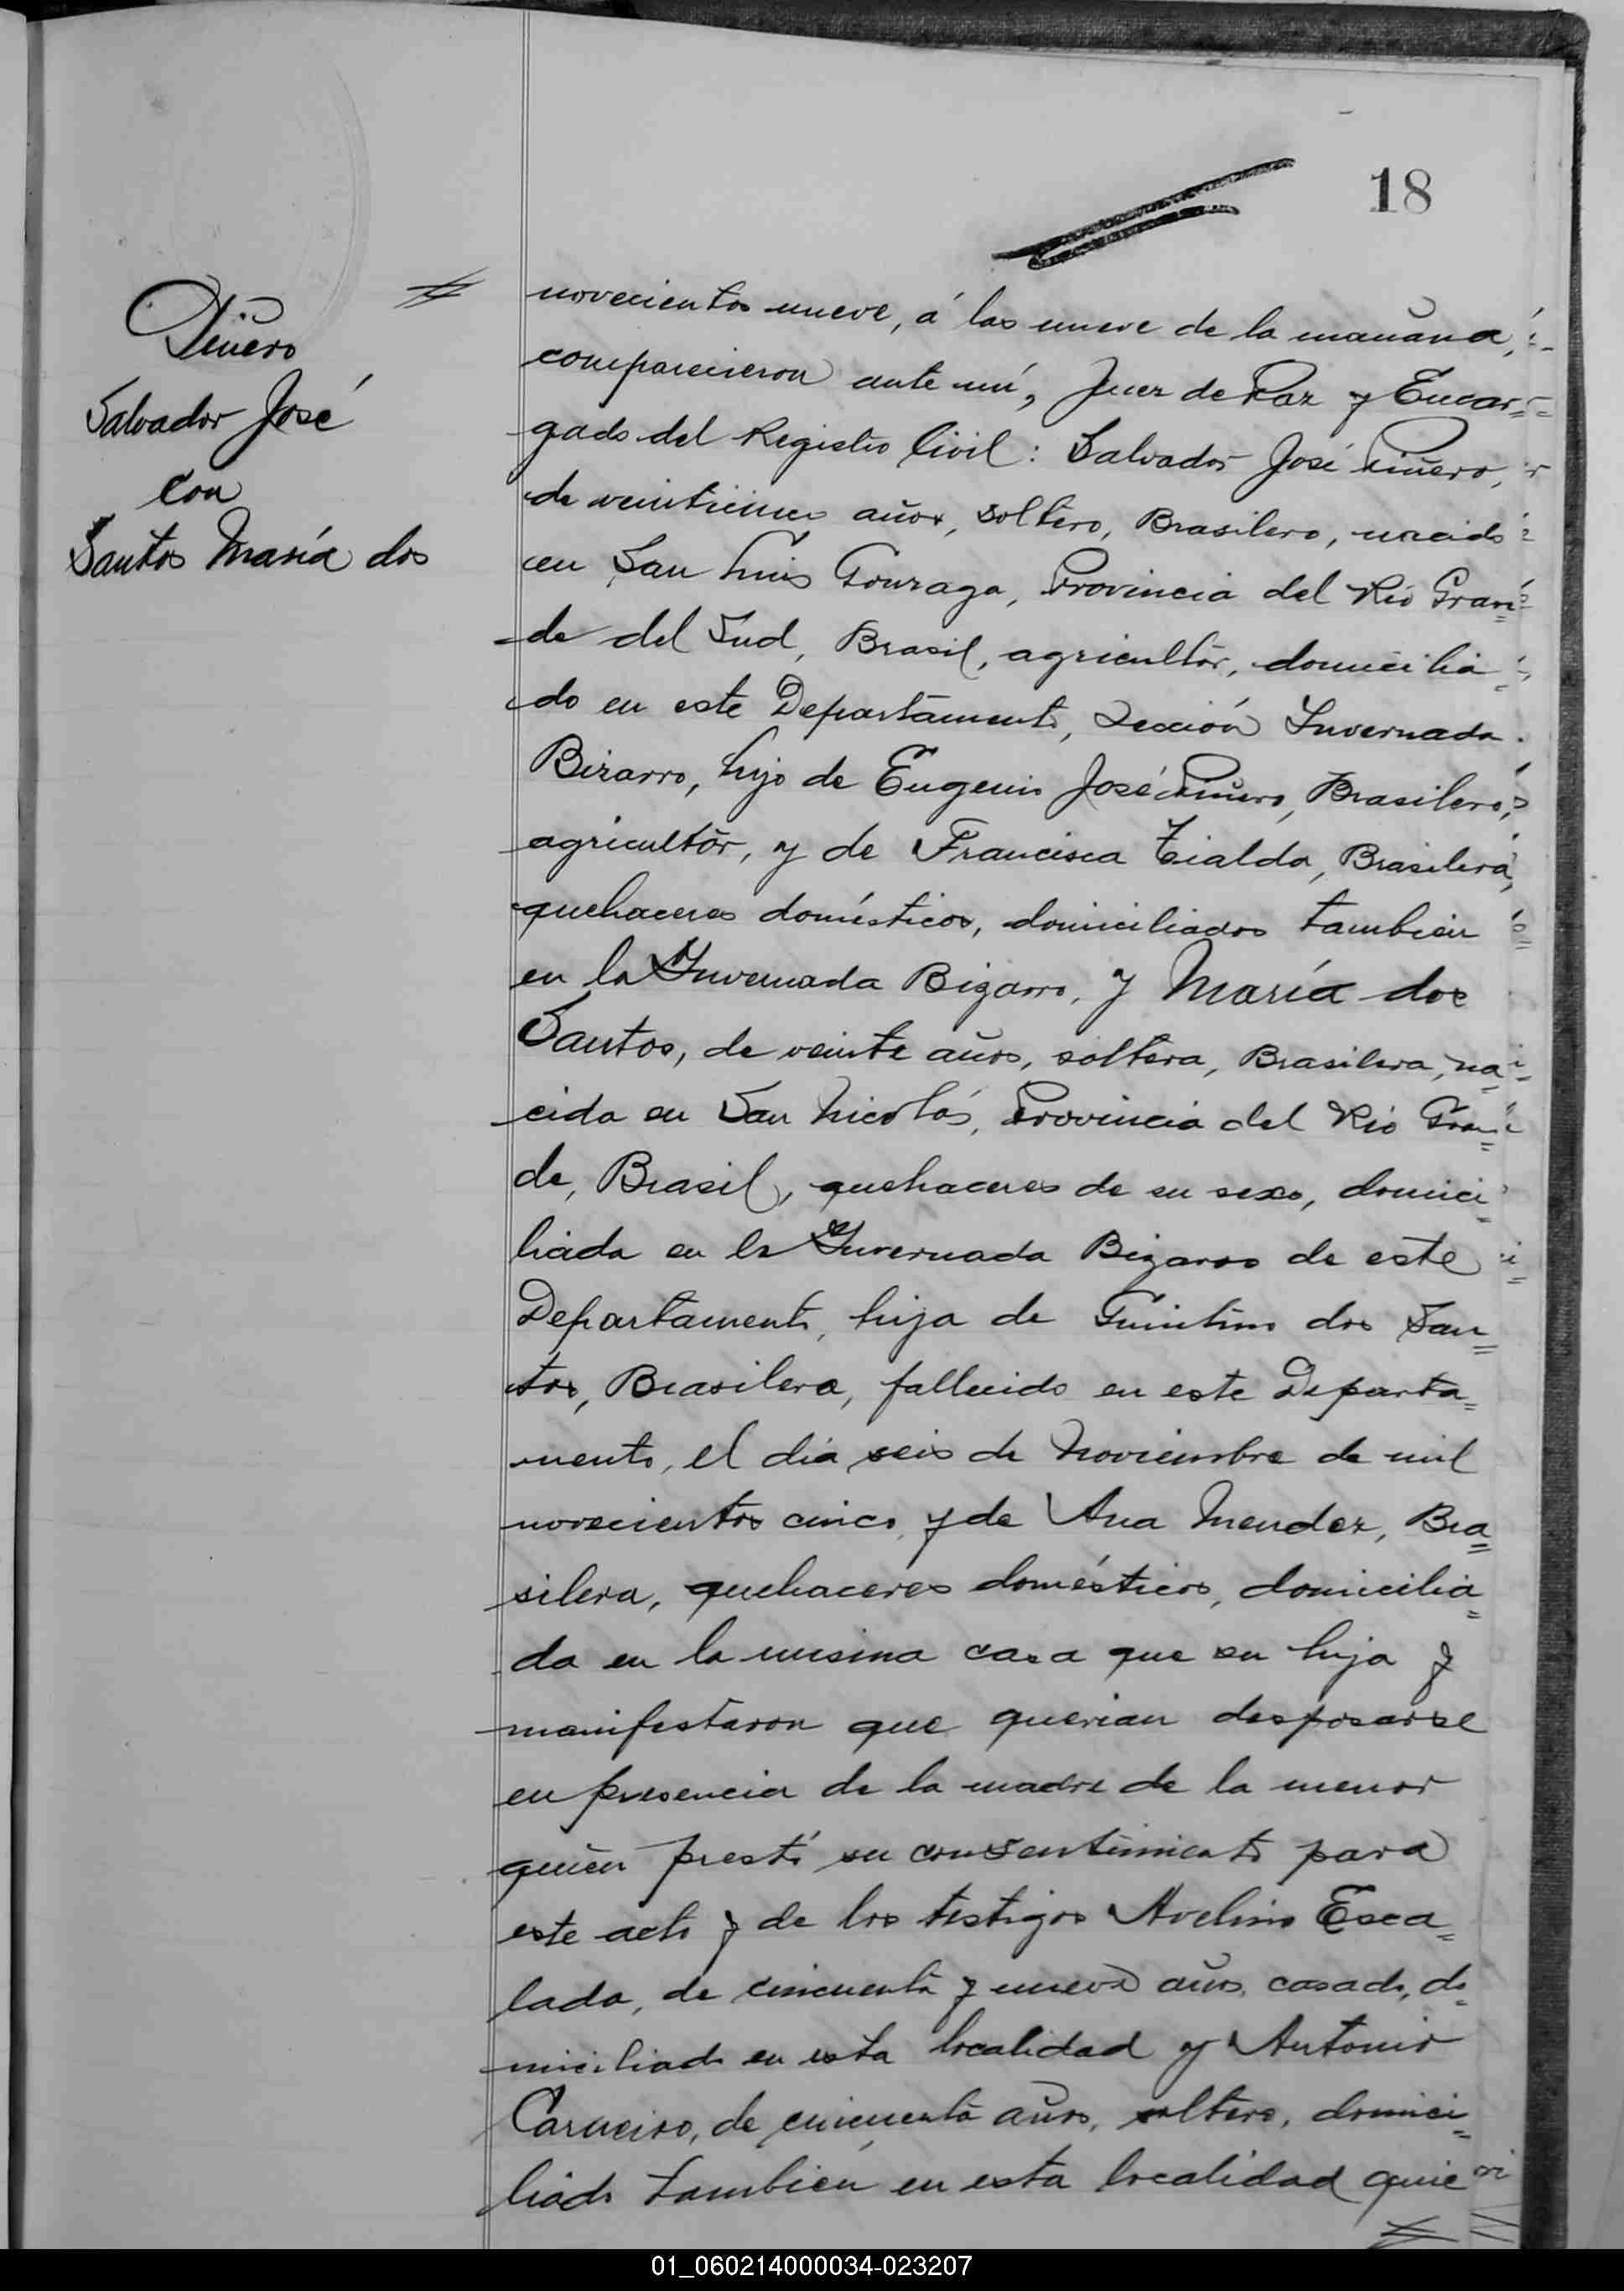 18
Piñero
Salvador José
con
Santos María dos
novecientos nueve, á las nueve de la mañana,
comparecieron ante mí, Juez de Paz y Encar=
gado del Registro Civil: Salvador José Piñero,
de veinticinco años, soltero, Brasilero, nacido
en San Luis Gonzaga, Provincia del Río Gran=
de del Sud, Brasil, agricultor, domicilia=
do en este Departamento, Sección Invernada
Bizarro, hijo de Eugenio José Piñero, Brasilero,
agricultor, y de Francisca Zialda, Brasilera,
quehaceres domésticos, domiciliados tambien
en la Invernada Bizarro, y María dos
Santos, de veinte años, soltera, Brasilera, na=
cida en San Nicolás, Provincia del Río Gran=
de, Brasil, quehaceres de su sexo, domici=
liada en la Invernada Bizarro de este
Departamento, hija de Guintino dos San=
tos, Brasilero, fallecido en este Departa=
mento, el día seis de Noviembre de mil
novecientos cinco y de Ana Mendez, Bra=
silera, quehaceres domésticos, domicilia=
da en la misma casa que su hija y
manifestaron que querian desposarse
en presencia de la madre de la menor
quien prestó su consentimiento para
este acto y de los testigos Avelino Esca=
lada, de cincuenta y nueve años, casado, do=
miciliado en esta localidad y Antonio
Carneiro, de cincuenta años, soltero, domici=
liado tambien en esta localidad quie
01_060214000034-023207